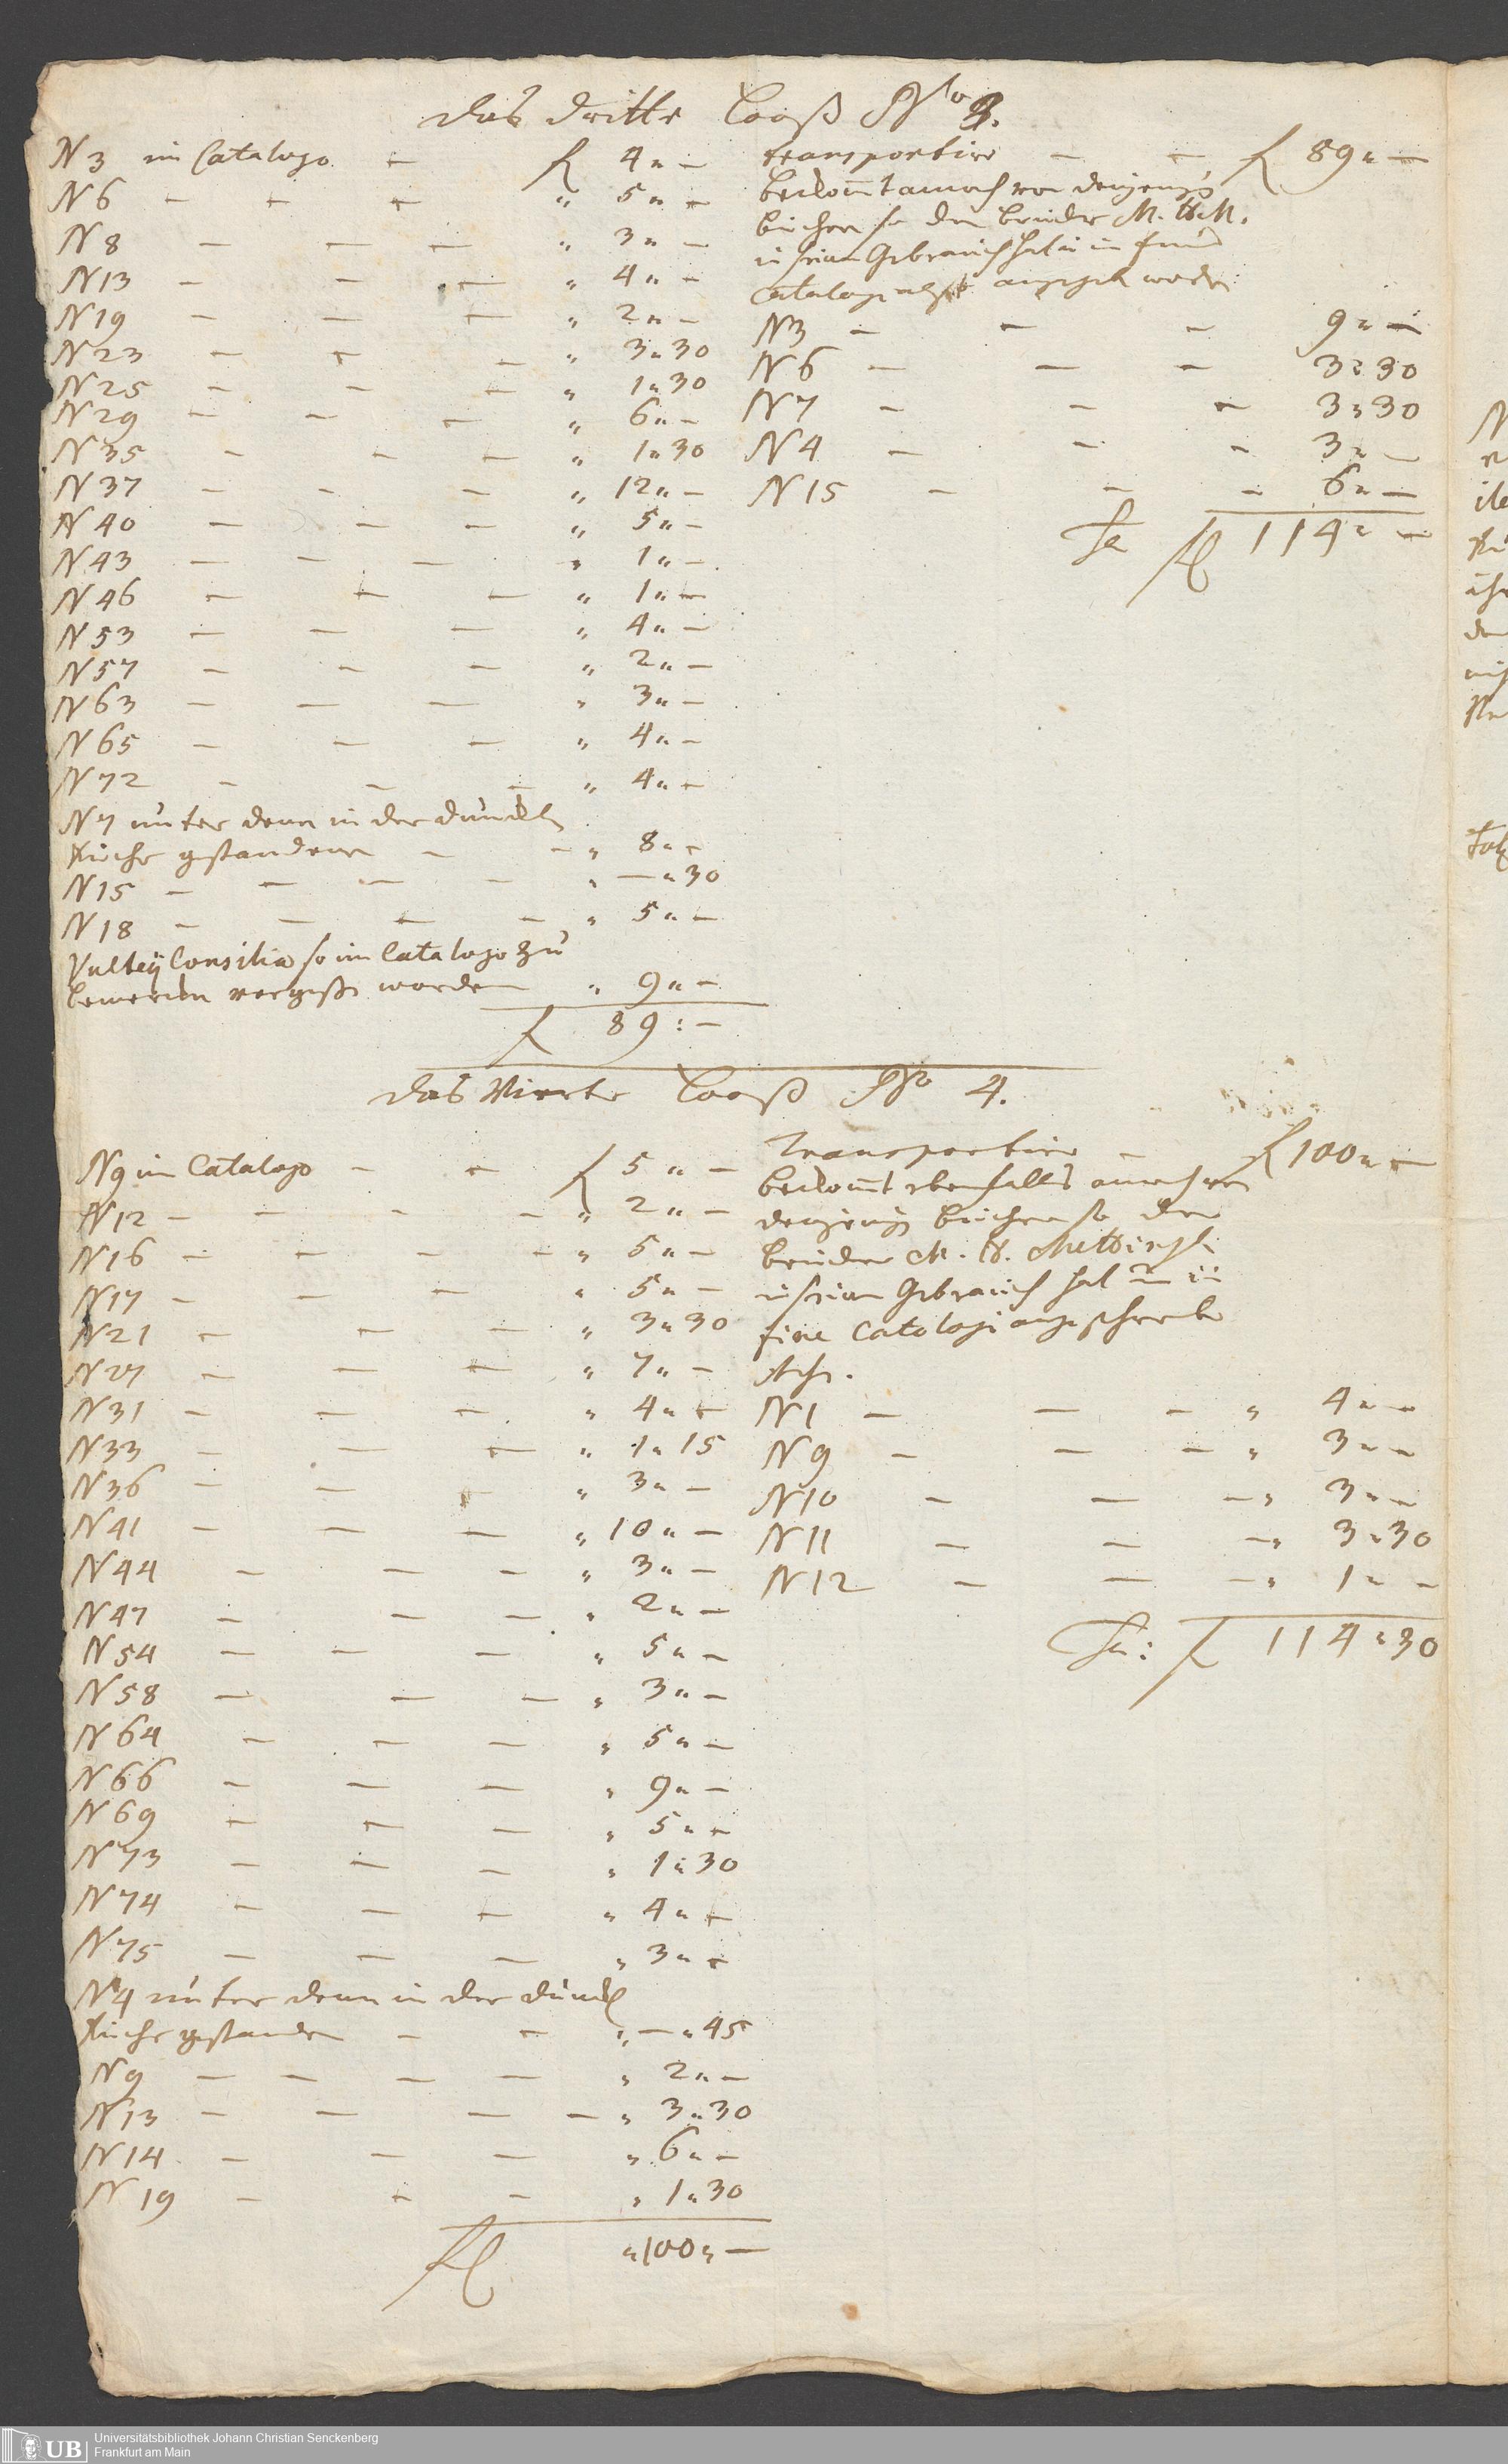 das dritte Looß No 3.
N 3 im Catalogo - fl 4 " -
N 6 - - - " 5 " -
N 8 - - - " 3 " -
N 13 - - - " 4 " -
N 19 - - - " 2 " -
N 23 - - - " 3 " 30
N 25 - - - " 1 " 30
N 29 - - - " 6 " -
N 35 - - - " 1 " 30
N 37 - - - " 12 " -
N 40 - - - " 5 " -
N 43 - - - " 1 " -
N 46 - - - " 1 " -
N 53 - - - " 4 " -
N 57 - - - " 2 " -
N 63 - - - " 3 " -
N 65 - - - " 4 " -
N 72 - - - " 4 " -
N 7 unter denen in der dunckeln
Küche gestandenen - - " 8 " -
N 15 - - - - " - " 30
N 18 - - - - " 5 " -
Vulteij Consilia so im Catalogo zu
bemercken vergessen worden " 9 " -
fl 89 : -
transportire - - fl 89 " -
bekomt annoch von denjenigen
büchern so der bruder M. W. M.
in seinem Gebrauch hat in
Catalogi worden
N 3 - - - 9 " -
N 6 - - - 3 " 30
N 7 - - - 3 " 30
N 4 - - - 3 " -
N 15 - - - 6 " -
Sa fl 114 " -
das Vierte Looß No 4.
N 9 im Catalogo - - fl 5 " -
N 12 - - - - " 2 " -
N 16 - - - - " 5 " -
N 17 - - - " 5 " -
N 21 - - - " 3 " 30
N 27 - - - " 7 " -
N 31 - - - " 4 " -
N 33 - - - " 1 " 15
N 36 - - - " 3 " -
N 41 - - - " 10 " -
N 44 - - - " 3 " -
N 47 - - - " 2 " -
N 54 - - - " 5 " -
N 58 - - - " 3 " -
N 64 - - - " 5 " -
N 66 - - - " 9 " -
N 69 - - - " 5 " -
N 73 - - - " 1 " 30
N 74 - - - " 4 " -
N 75 - - - " 3 " -
N 4 unter denen in der dunckeln
Küche gestanden - - " - " 45
N 9 - - - - " 2 " -
N 13 - - - - " 3 " 30
N 14 - - - " 6 " -
N 19 - - - " 1 " 30
fl " 100 " -
Transportire - fl 100 " -
bekomt ebenfalls annoch von
denjenigen bücher so der
bruder M. W.
in seinem Gebrauch hat
fine Catalogi angeschrieben
stehen.
N 1 - - - " 4 " -
N 9 - - - " 3 " -
N 10 - - - " 3 " -
N 11 - - - " 3 " 30
N 12 - - - " 1 " -
Sa : fl 114 " 30
UB
Universitätsbibliothek Johann Christian Senckenberg
Frankfurt am Main